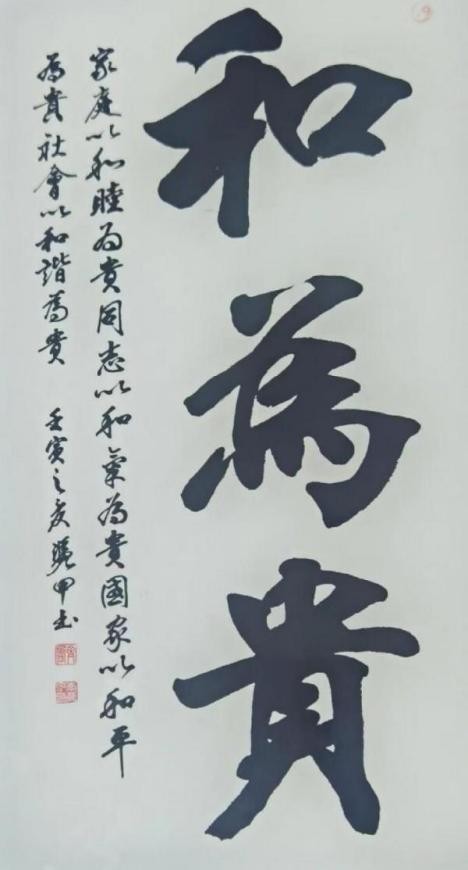 和為貴
家庭以和睦為貴同志以和氣為貴國家以和平
為貴社會以和諧為貴
壬寅之夏